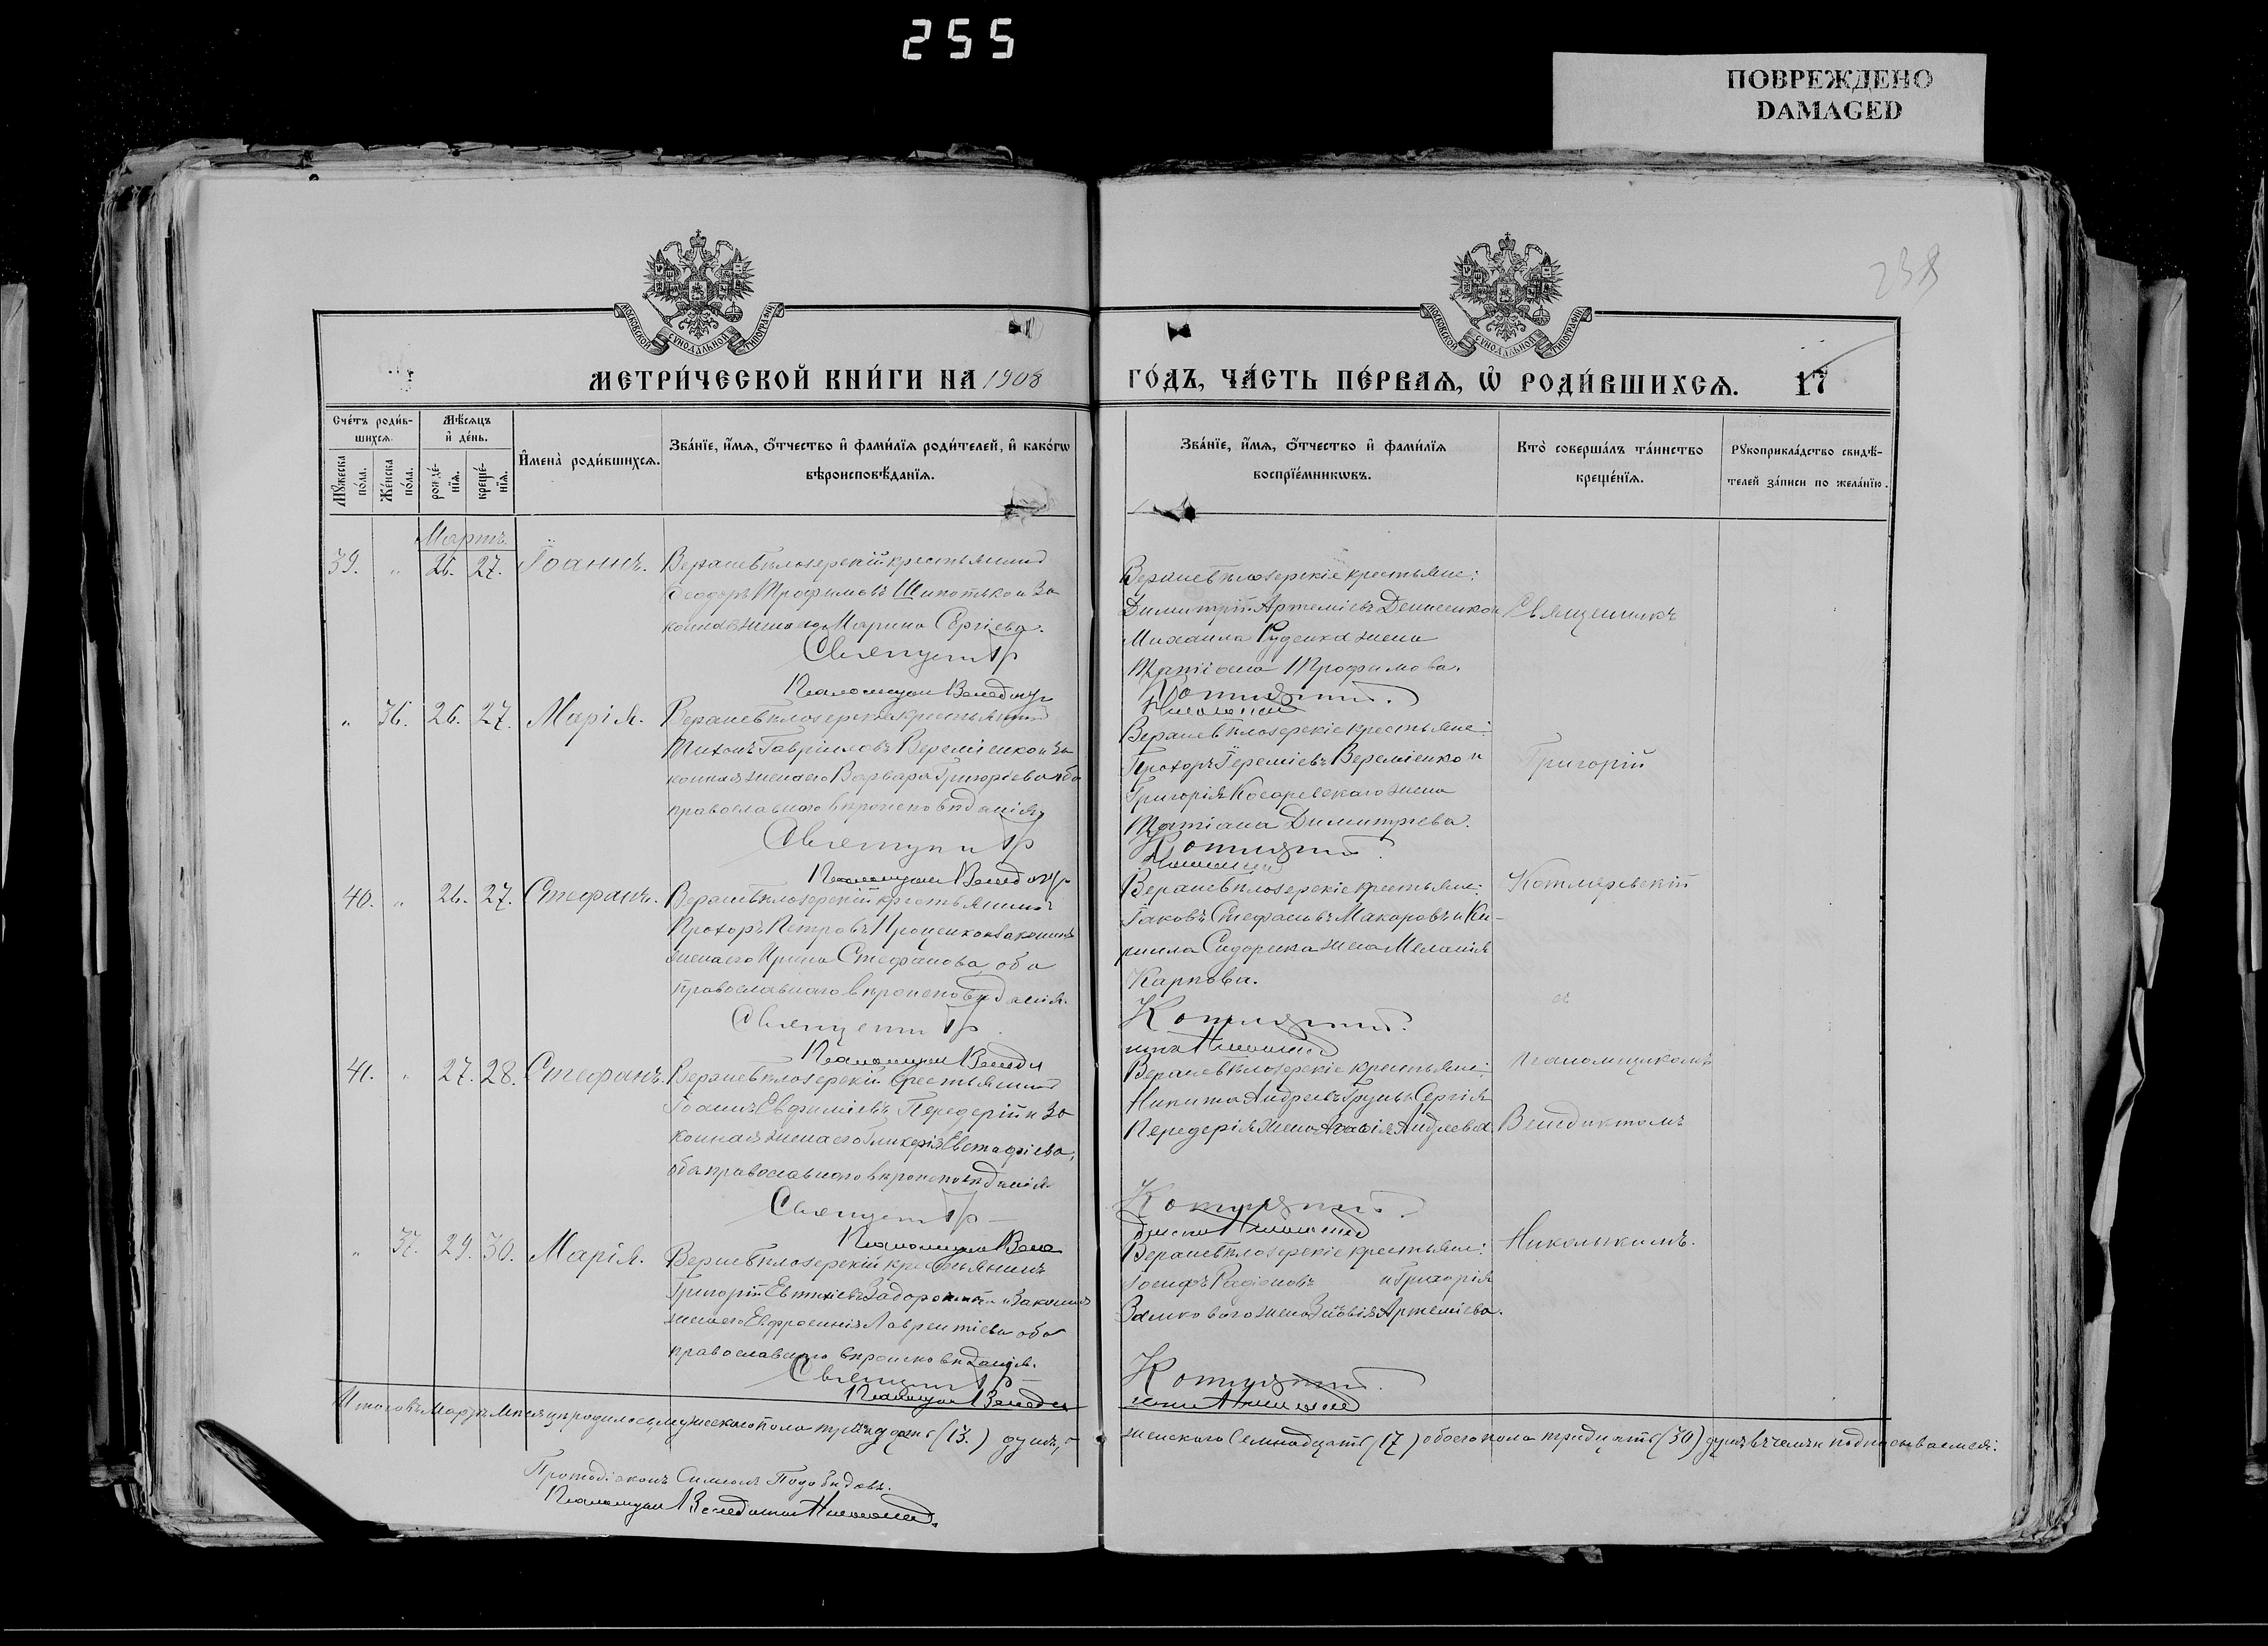 255
ПОВРЕЖДЕНО
DAMAGED
238
МОСКОВСКОЙ СУНОДАЛЬНОЙ ТИПОГРАФІИ
МОСКОВСКОЙ СУНОДАЛЬНОЙ ТИПОГРАФІИ
МЕТРИ́ЧЕСКОЙ КНИ́ГИ НА 1908
ГО́ДЪ, ЧА́СТЬ ПЕ́РВАѦ, Ѡ҆ РОДИ́ВШИХСѦ. 17
Сче́тъ роди́в-
шихсѧ.
Мꙋ́жеска по́ла.
Же́нска по́ла.
Мѣ́сѧцъ
и҆ де́нь.
рожде́-
нїѧ.
креще́-
нїѧ.
И҆мена̀ роди́вшихсѧ.
Зва́нїе, и҆́мѧ, ѻ҆́тчество и҆ фами́лїѧ роди́телей, и҆ како́гѡ
вѣроисповѣ́данїѧ.
Зва́нїе, и҆́мѧ, ѻ҆́тчество и҆ фами́лїѧ
воспрїе́мникѡвъ.
Кто̀ соверша́лъ та́инство
креще́нїѧ.
Рꙋкоприкла́дство свидѣ́-
телей за́писи по жела́нїю.
Мартъ
39. „ 26. 27. Іоаннъ.
Верхнебѣлозерскій крестьянинъ
Ѳеодоръ Трофимовъ Шипотько и за
конная жена его Марина Сергіева.
Священн Гр
Псаломщик Венедикт
Верхнебѣлозерскіе крестьяне:
Димитрій Артеміевъ Денисенко и
Михаила Руденка жена
Татіана Трофимова.
Священникъ
„ 36. 26. 27. Марія.
Верхнебѣлозерскій крестьянинъ
Тихонъ Гавріиловъ Вереміенко и за
конная жена его Варвара Григоріева оба
православнаго вѣроисповѣданія.
Священн Гр
Псаломщик Венедикт
Верхнебѣлозерскіе крестьяне:
Прохоръ Іереміевъ Вереміенко и
Григорія Косаревскаго жена
Татіана Димитріева.
Григорій
40. „ 26. 27. Стефанъ.
Верхнебѣлозерскій крестьянинъ
Прохоръ Петровъ Проценко и законная
жена его Ирина Стефанова, оба
православнаго вѣроисповѣданія.
Священн Гр
Псаломщик Венеди
Верхнебѣлозерскіе крестьяне:
Іаковъ Стефановъ Макаровъ и Ки-
рилла Сидорика жена Меланія
Карпова.
Котляревскій
съ
41. „ 27. 28. Стефанъ.
Верхнебѣлозерскій крестьянинъ
Іоаннъ Евфиміевъ Передерій и за
конная жена его Гликерія Евстафіева,
оба православнаго вѣроисповѣданія.
Священн Гр
Псаломщик Вене
Верхнебѣлозерскіе крестьяне:
Никита Андреевъ и Сергія
Передерія жена Андреева.
Псаломщикомъ
Венедиктомъ
„ 37. 29. 30. Марія.
Верхнебѣлозерскій крестьянинъ
Григорій Евтихіевъ Задорожній и законная
жена его Евфросинія Лаврентіева оба
православнаго вѣроисповѣданія.
Священн Гр
Псаломщик Венеди
Верхнебѣлозерскіе крестьяне:
Іосифъ Радіоновъ и Григорія
Замкового жена Зиновія Артеміева.
Итого въ Мартѣ мѣсяцѣ родилось мужескаго пола тринадцать (13.) душъ, а
женскаго семнадцать (17) обоего пола тридцать (30) душъ въ чемъ и подписываемся:
Протодіаконъ Симеонъ
Псаломщик Венедиктъ